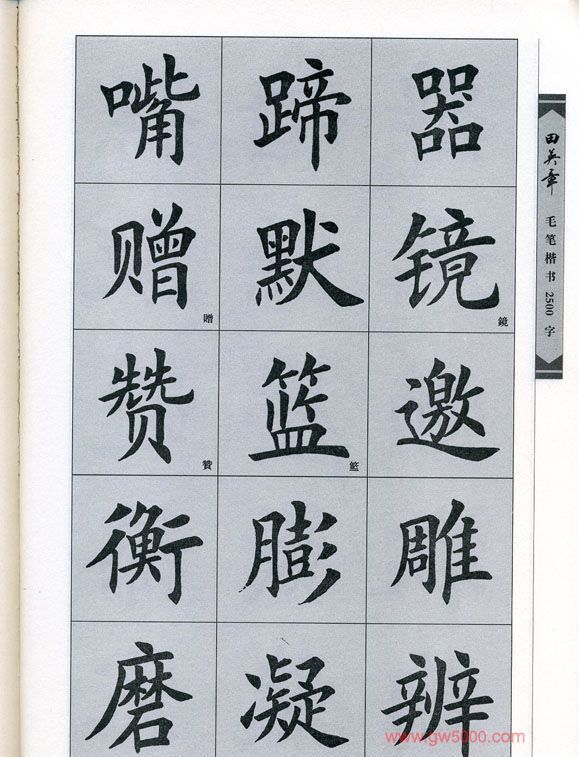 嘴 蹄 器
赠 默 镜
贈 鏡
赞 篮 邀
贊 籃
衡 膨 雕
磨 凝 辨
田英章 毛笔楷书2500字
www.gw5000.com